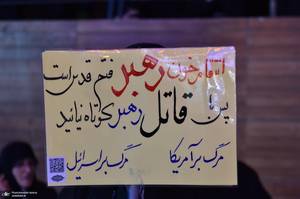 انتقام خون رهبر فتح قدس است
با قاتل رهبر کوتاه نیائید
مرگ بر آمریکا مرگ بر اسرائیل